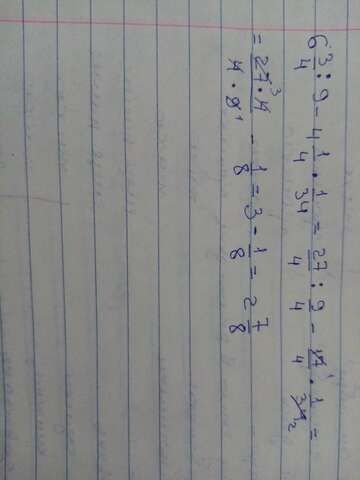 6 3/4 : 9 - 4 1/4 · 1/34 = 27/4 : 9/4 - 17¹/4 · 1/34₂ =
= 27³·4/4·9¹ - 1/8 = 3 - 1/8 = 2 7/8